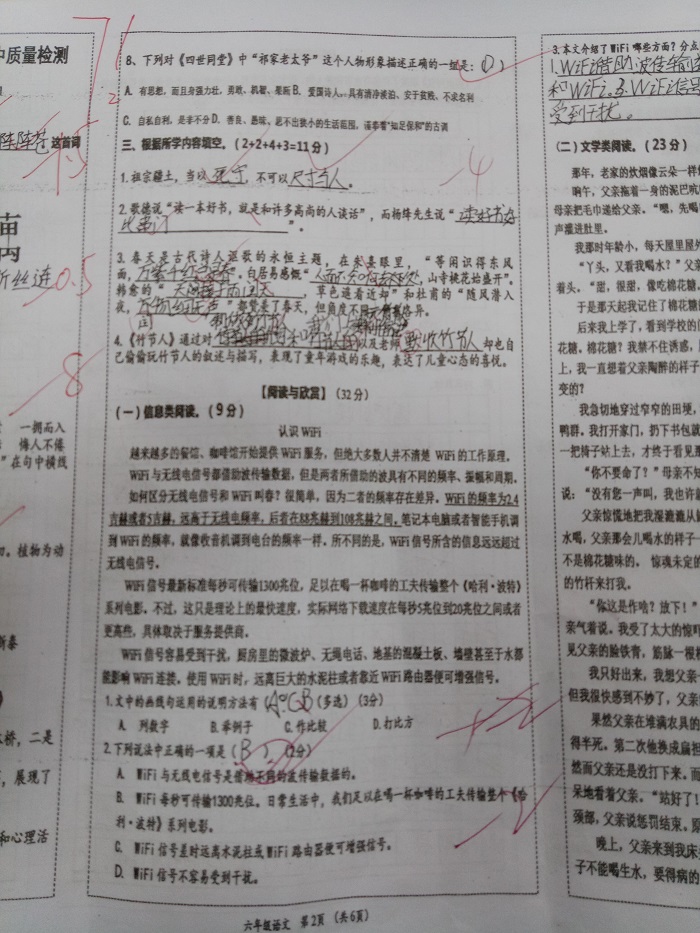 中质量检测
71
2
阵阵苍 这首词
0.5
8
一拥而入
倦人不倦
”在句中横线
植物为动
桥，二是
，展现了
和心理活
8、下列对《四世同堂》中“祁家老太爷”这个人物形象描述正确的一组是：（D）
A. 有思想，而且身强力壮，勇敢、机智、果断 B. 爱国诗人，具有清净淡泊、安于贫贱、不求名利
C. 自私自利，是非不分 D. 善良、愚昧，逃不出狭小的生活范围，谨奉着“知足保和”的古训
三、根据所学内容填空。（2+2+4+3=11分）
-4
1. 祖宗疆土，当以 死守 ，不可以 尺寸与人。
2. 歌德说“读一本好书，就是和许多高尚的人谈话”，而杨绛先生说“读好书好
比串门 ”。
3. 春天是古代诗人讴歌的永恒主题，在朱熹眼里，“等闲识得东风
面，万紫千红总是春”。白居易感慨“人面不知何处去，山寺桃花始盛开”。
韩愈的“天街小雨润天，草色遥看近却”和杜甫的“随风潜入
夜，润物细无声”都赞美了春天，但角度不同，情致各异。
4.《竹节人》通过对 以及老师 没收竹节人 却也自
己偷偷玩竹节人的叙述与描写，表现了童年游戏的乐趣，表达了儿童心态的喜悦。
【阅读与欣赏】（32分）
（一）信息类阅读。（9分）
认识WiFi
越来越多的餐馆、咖啡馆开始提供WiFi服务，但绝大多数人并不清楚 WiFi的工作原理。
WiFi与无线电信号都借助波传输数据，但是两者所借助的波具有不同的频率、振幅和周期。
如何区分无线电信号和 WiFi叫春？很简单，因为二者的频率存在差异。WiFi的频率为2.4
吉赫或者5吉赫，远高于无线电频率，后者在88兆赫到108兆赫之间。笔记本电脑或者智能手机调
到WiFi的频率，就像收音机调到电台的频率一样。所不同的是，WiFi信号所含的信息远远超过
无线电信号。
WiFi信号最新标准每秒可传输1300兆位，足以在喝一杯咖啡的工夫传输整个《哈利·波特》
系列电影。不过，这只是理论上的最快速度，实际网络下载速度在每秒5兆位到20兆位之间或者
更高些，具体取决于服务提供商。
WiFi信号容易受到干扰，厨房里的微波炉、无绳电话、地基的混凝土板、墙壁甚至于水都
能影响WiFi连接。使用WiFi时，远离巨大的水泥柱或者靠近WiFi路由器便可增强信号。
1. 文中的画线句运用的说明方法有（ACB）（多选）（3分）
A. 列数字 B. 举例子 C. 作比较 D. 打比方
2. 下列说法中正确的一项是（B）。（2分）
A. WiFi与无线电信号是借助不同的波传输数据的。
B. WiFi每秒可传输1300兆位。日常生活中，我们足以在喝一杯咖啡的工夫传输整个《哈
利·波特》系列电影。
C. WiFi信号差时远离水泥柱或WiFi路由器便可增强信号。
D. WiFi信号不容易受到干扰。
六年级语文 第2页 （共6页）
3. 本文介绍了WiFi哪些方面？分点
1. WiFi借助波传输
和WiFi。3. WiFi信号
受到干扰。
（二）文学类阅读。（23分）
那年，老家的炊烟像云朵一样
晌午，父亲拖着一身的泥巴
母亲把毛巾递给父亲。“嗯，先喝
声灌进肚里。
我那时年龄小，每天屋里屋外
“丫头，又看我喝水？”父亲
着头，“甜，很甜，像吃棉花糖。
于是那天起我记住了棉花糖
后来我上学了，看到学校的
花糖。棉花糖？我禁不住诱惑，
上，我一直想着父亲陶醉的样子
变的？
我急切地穿过窄窄的田埂，
鸭群。我打开家门，扔下书包就
一把椅子站上去，才终于看见那
“你不要命了？”母亲不知
说：“没有您一声叫，我也许就
父亲惊慌地把我湿漉漉从
水喝，父亲那会儿喝水的样子一
不是棉花糖味的。惊魂未定的
的竹杆来打我。
“你这是作啥？放下！”
亲气着说。我受了太大的惊吓
见父亲的脸铁青，筋脉一根根
我只好出来，我想父亲一
但我很快感到不妙了，父亲
果然父亲在堆满农具的
得半死。第二次他换成扁担
然而父亲还是没打下来。而
呆地看着父亲。“站好了！
颈部，父亲说惩罚结束。原
晚上，父亲来到我床
子不能喝生水，要得病的